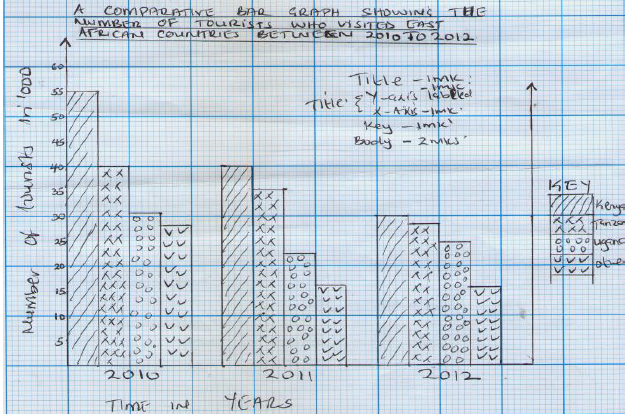 A COMPARATIVE BAR GRAPH SHOWING THE
NUMBER OF TOURISTS WHO VISITED EAST
AFRICAN COUNTRIES BETWEEN 2010 TO 2012
Number of tourists in '000
60
55
50
45
40
35
30
25
20
15
10
5
Title - 1mk.
- 1mk
Title: { Y-axis labelled
X-Axis - 1mk
Key - 1mk
Body - 2mks
KEY
Kenya
Tanzan
ugand
2010
2011
2012
TIME IN YEARS